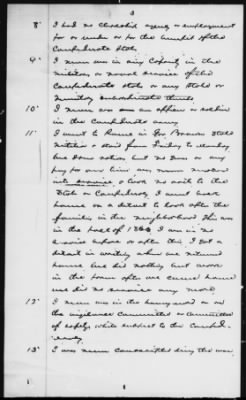 3
8" I had no
or employment
for or under or for the benefit of the
Confederate State
9" I never was in any Capacity in the
military or naval service of the
Confederate state or any state or
territory
10" I never was an officer or soldier
in the Confederate army
11" I went to Rome in Gov Browns State
Militia & staid from Friday to Monday
but done nothing but no Guns or any
pay for our time was never
into service, & took no oath to the
State or Confederacy I went back
home on a detail to look after the
families in the neighborhood This was
in the fall of 1864 I was in no
service before or after this I got a
detail in writing when we returned
home but did nothing but work
in the farm after we came home
we did no service any more
12" I never was in the home guard or on
the vigilance Committee or Committee
of safety while subject to the Confed-
eracy
13" I was never conscripted during the war